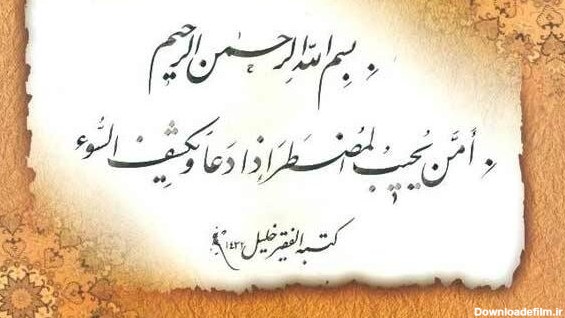 بِسْمِ اللهِ الرحمن الرحيم
أَمَّن يُجيبُ المُضْطَرَ إِذا دَعَاهُ وَيَكْشِفُ السُّوءَ
كتبه الفقير خليل ١٤٣٢
Downloadefilm.ir